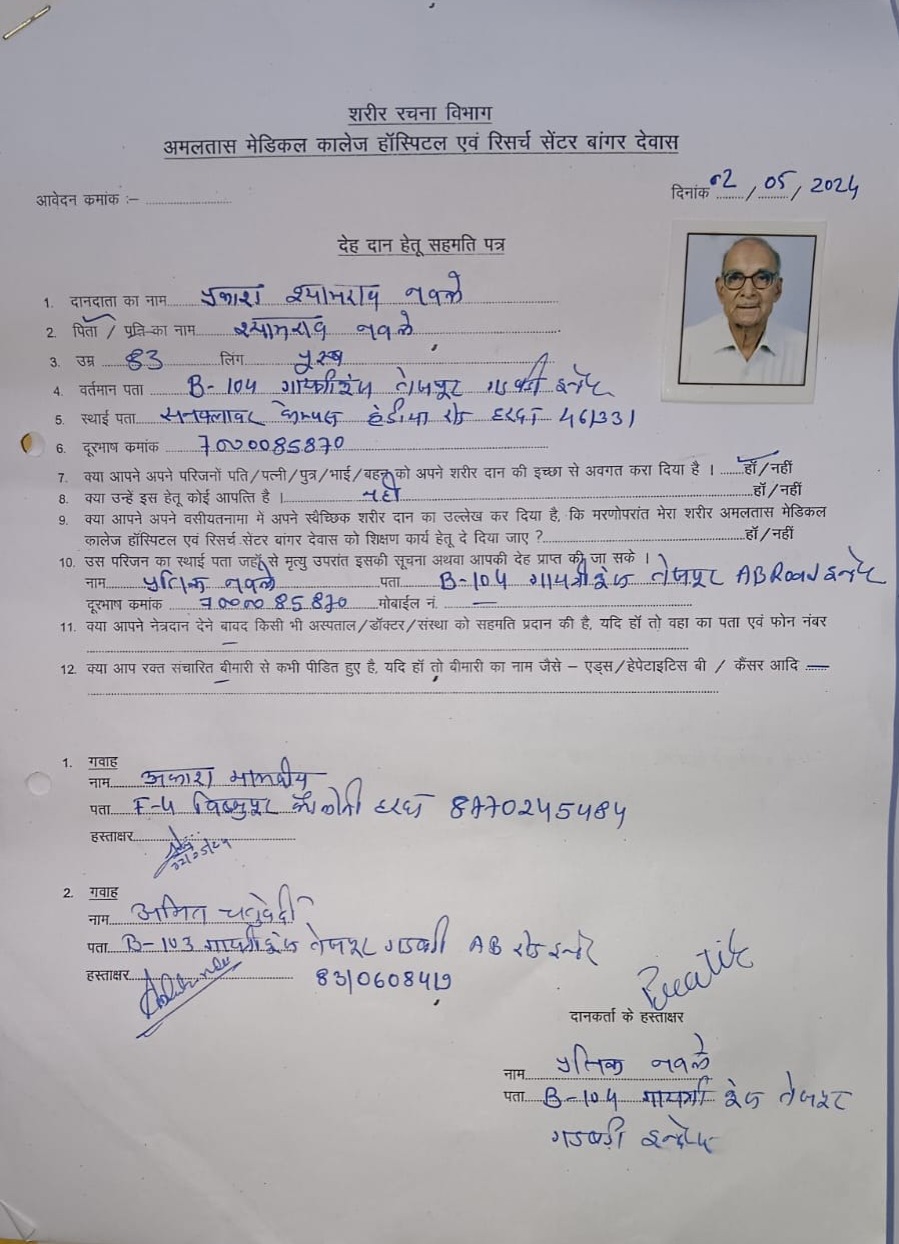 शरीर रचना विभाग
अमलतास मेडिकल कालेज हॉस्पिटल एवं रिसर्च सेंटर बांगर देवास
आवेदन कमांक :– ........................
दिनांक 02 / 05 / 2024
देह दान हेतू सहमति पत्र
1. दानदाता का नाम प्रकाश श्यामराव नवले
2. पिता / प्रति का नाम श्यामराव नवले
3. उम्र 83 लिंग पुरुष
4. वर्तमान पता B-104 गायत्री तेजपूर गडबडी इन्दौर
5. स्थाई पता सनफ्लावर केम्पस हंडीया रोड हरदा 461331
6. दूरभाष कमांक 7000085870
7. क्या आपने अपने परिजनों पति/पत्नी/पुत्र/भाई/बहन को अपने शरीर दान की इच्छा से अवगत करा दिया है । ......हॉ/नहीं
8. क्या उन्हें इस हेतू कोई आपत्ति है । नहीं हॉ/नहीं
9. क्या आपने अपने वसीयतनामा में अपने स्वैच्छिक शरीर दान का उल्लेख कर दिया है, कि मरणोपरांत मेरा शरीर अमलतास मेडिकल
कालेज हॉस्पिटल एवं रिसर्च सेटर बांगर देवास को शिक्षण कार्य हेतू दे दिया जाए ? हॉ/नहीं
10. उस परिजन का स्थाई पता जहॉं से मृत्यु उपरांत इसकी सूचना अथवा आपकी देह प्राप्त की जा सके ।
नाम प्रतिक नवले पता B-104 गायत्री तेजपूर AB Road इन्दौर
दूरभाष कमांक 7000085870 मोबाईल नं. —
11. क्या आपने नेत्रदान देने बावद किसी भी अस्पताल/डॉक्टर/संस्था को सहमति प्रदान की है, यदि हॉ तो वहा का पता एवं फोन नंबर
—
12. क्या आप रक्त संचारित बीमारी से कभी पीडित हुए है, यदि हॉ तो बीमारी का नाम जैसे – एड्स/हेपेटाइटिस बी / कैंसर आदि —
—
1. गवाह
नाम आकाश मालवीय
पता F-4 विष्णुपूर कॉलोनी हरदा 8770245484
हस्ताक्षर 02/05/24
2. गवाह
नाम अमित चतुर्वेदी
पता B-103 गायत्री तेजपूर गडबडी AB रोड इन्दौर
हस्ताक्षर 8310608419
Pratik
दानकर्ता के हस्ताक्षर
नाम प्रतिक नवले
पता B-104 गायत्री तेजपूर
गडबडी इन्दौर